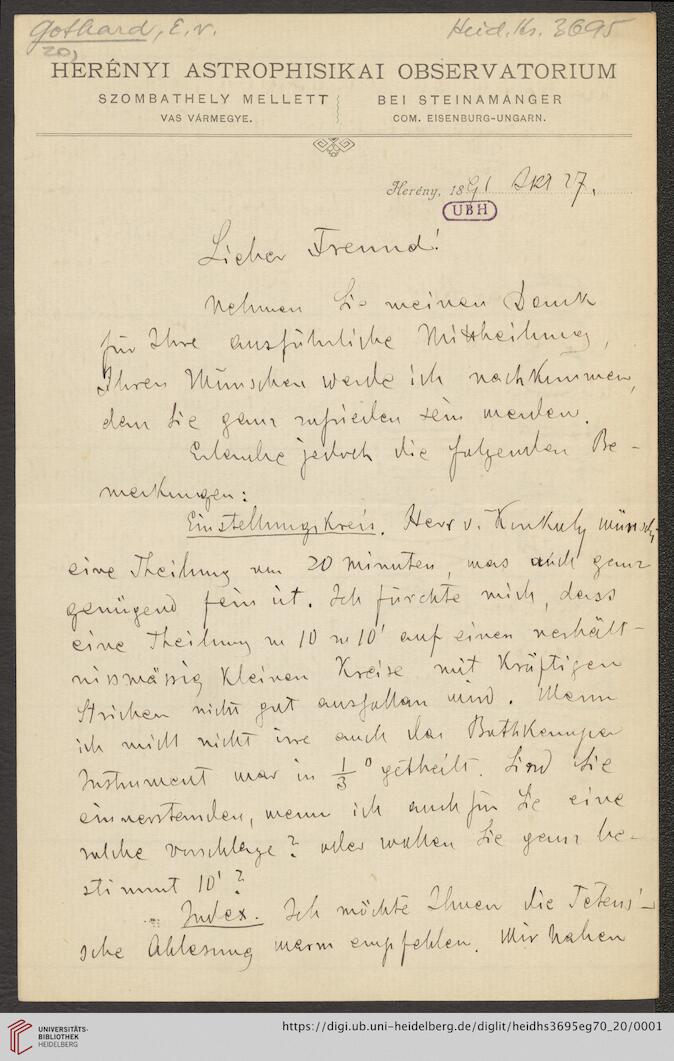 Gothard, E. v.
Heid. Hs. 3695
20,
HERÉNYI ASTROPHISIKAI OBSERVATORIUM
SZOMBATHELY MELLETT
BEI STEINAMANGER
VAS VÁRMEGYE.
COM. EISENBURG-UNGARN.
Herény, 1891 Okt 27.
UBH
Lieber Freund!
Nehmen Sie meinen Dank
für Ihre ausführliche Mittheilung,
Ihren Wünschen werde ich nachkommen,
dass Sie ganz zufrieden sein werden.
Erlaube jedoch die folgenden Be-
merkungen:
Einstellungskreis. Herr v. Konkoly wünscht
eine Theilung von 20 Minuten, was auch ganz
genügend fein ist. Ich fürchte mich, dass
eine Theilung von 10 zu 10' auf einen verhält-
nissmässig kleinen Kreise mit kräftigen
Strichen nicht gut ausfallen wird. Wenn
ich mich nicht irre auch das Bothkamper
Instrument war in 1/3° getheilt. Sind Sie
einverstanden, wenn ich auch für Sie eine
solche vorschlage? oder wollen Sie ganz be-
stimmt 10'?
Index. Ich möchte Ihnen die Tetens'-
sche Ablesung warm empfehlen. Wir haben
UNIVERSITÄTS-
BIBLIOTHEK
HEIDELBERG
https://digi.ub.uni-heidelberg.de/diglit/heidhs3695eg70_20/0001